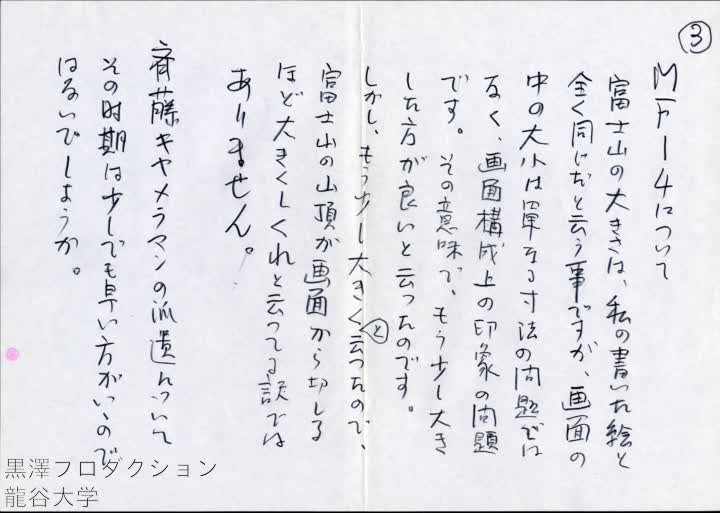 ③
MF14について
富士山の大きさは、私の書いた絵と
全く同じだと云う事ですが、画面の
中の大小は単なる寸法の問題では
なく、画面構成上の印象の問題
です。その意味で、もう少し大き
した方が良いと云ったのです。
しかし、もう少し大きくと云ったので、
富士山の山頂が画面から切れる
ほど大きくしくれと云ってる訳では
ありません。
斉藤キャメラマンの派遣について
その時期は少しでも早い方がいいので
はないでしょうか。
黒澤プロダクション
龍谷大学